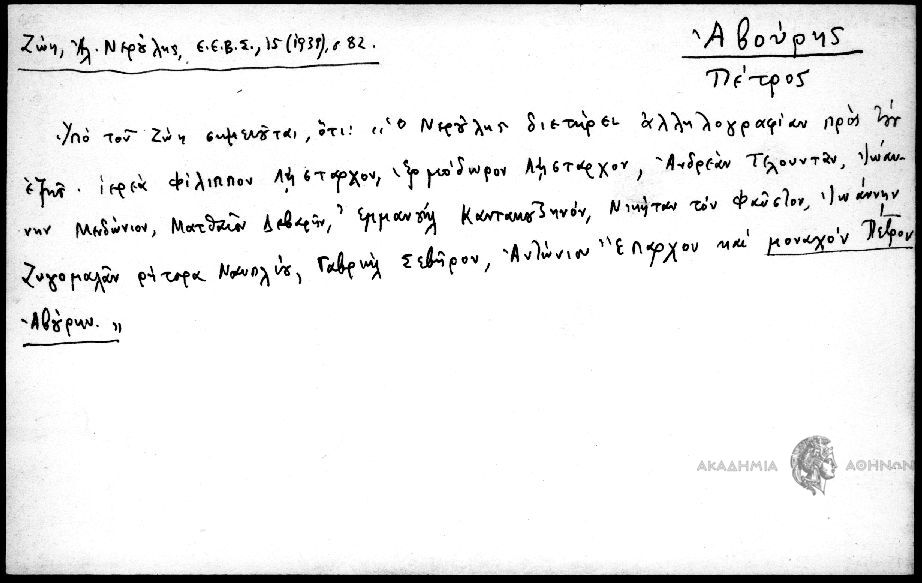 Ζώη, Ἀλ. Νερούλης, Ε.Ε.Β.Σ., 15 (1939), σ 82.
Ἀβούρης
Πέτρος
Ὑπὸ τοῦ Ζώη σημειοῦται, ὅτι: „ὁ Νερούλης διετήρει ἀλληλογραφίαν πρὸς τοὺς
ἑξῆς· ἱερέα Φίλιππον Λήσταρχον, Ἑρμόδωρον Λήσταρχον, Ἀνδρέαν Τελούνταν, Ἰωάν-
νην Μινδώνιον, Ματθαῖον Δεβαρῆν, Ἐμμανουὴλ Καντακουζηνόν, Νικήταν τὸν Φαῦστον, Ἰωάννην
Ζυγομαλᾶν ρήτορα Ναυπλίου, Γαβριὴλ Σεβῆρον, Ἀντώνιον Ἔπαρχον καὶ μοναχὸν Πέτρον
Ἀβούρην. „
ΑΚΑΔΗΜΙΑ ΑΘΗΝΩΝ